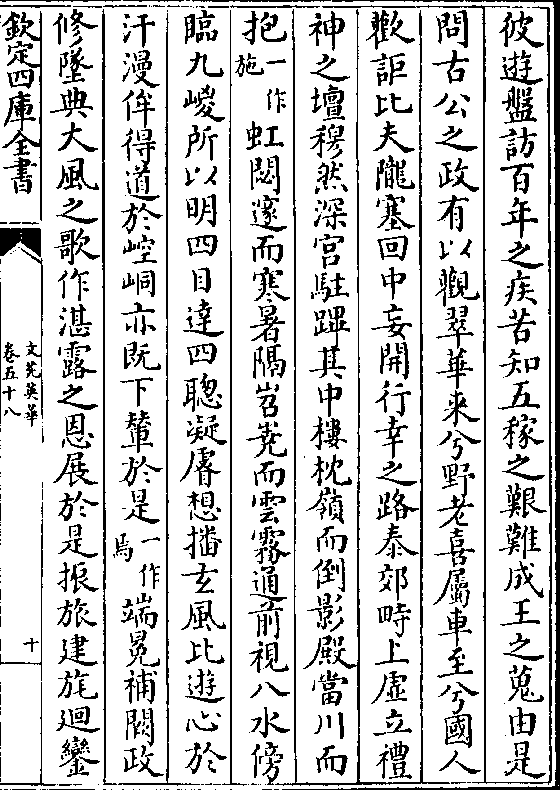 彼遊盤訪百年之疾苦知五稼之艱難成王之蒐由是
問古公之政有以觀翠華来兮野老喜屬車至兮國人
歡詎比夫隴塞回中妄開行幸之路泰郊畤上虚立禮
神之壇穆然深宫駐蹕其中樓枕嶺而倒影殿當川而
抱一作施虹閟邃而寒暑隔岧嶤而雲霧通前視八水傍
臨九嵕所以明四目達四聰凝睿想播玄風比遊心於
汗漫侔得道於崆峒亦既下輦於是一作焉端冕補闕政
修墜典大風之歌作湛露之恩展於是振旅建旄迴鑾
欽定四庫全書
文苑英華
卷五十八
十